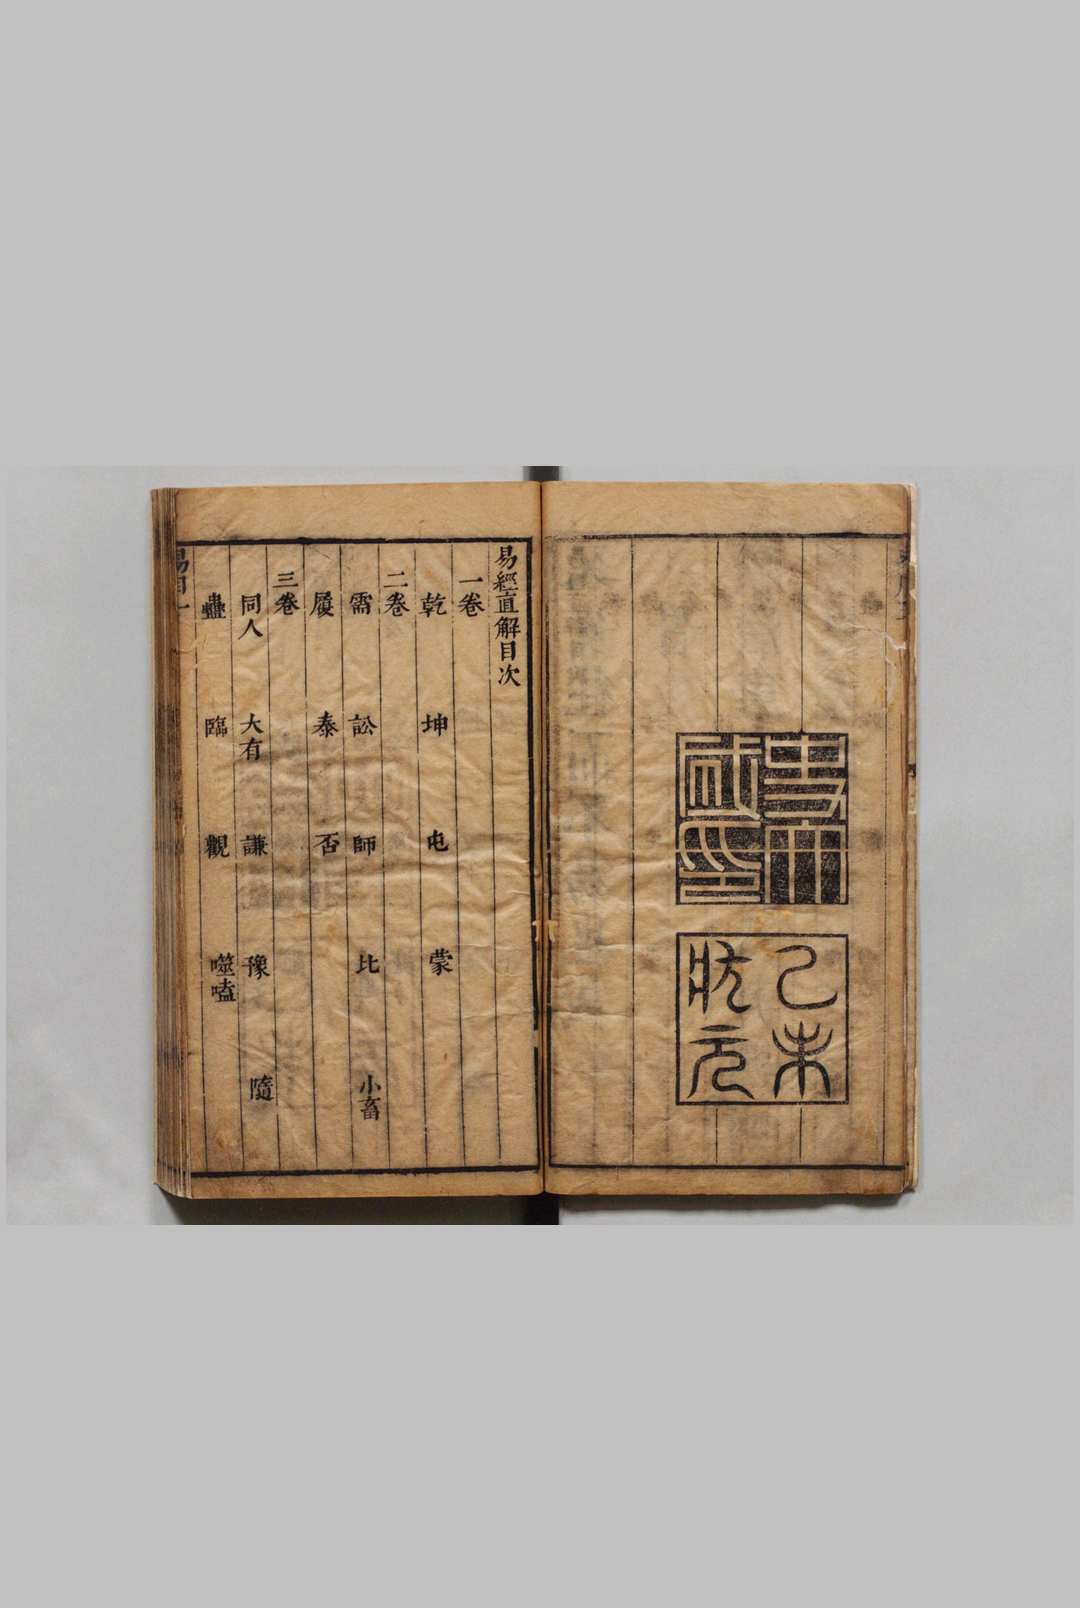 史大
成印
乙未
狀元
易經直解目次
一卷
乾 坤 屯 蒙
二卷
需 訟 師 比 小畜
履 泰 否
三卷
同人 大有 謙 豫 隨
蠱 臨 觀 噬嗑